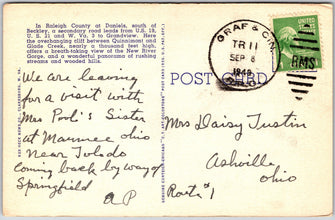 In Raleigh County at Daniels, south of
Beckley, a secondary road leads from U.S. 19,
U. S. 21 and W. Va. 3 to Grandview. Here
the overhanging cliff between Quinnimont and
Glade Creek, nearly a thousand feet high,
offers a breath-taking view of the New River
Gorge, and a wonderful panorama of rushing
streams and wooded hills.
We are leaving
for a visit with
Mrs Pool's Sister
at Maumee Ohio
Near Toledo
Coming back by way of
Springfield
AP
POST CARD
GRAF & CIN.
TR 11
SEP 8
1948
R.P.O.
RMS
Mrs Daisy Justin
Ashville,
Ohio
Route #1